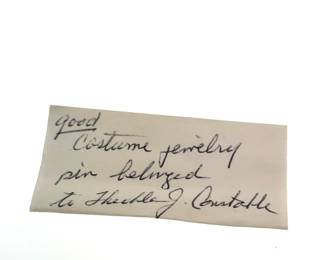 good
Costume jewelry
pin belonged
to Theckla J. Constable